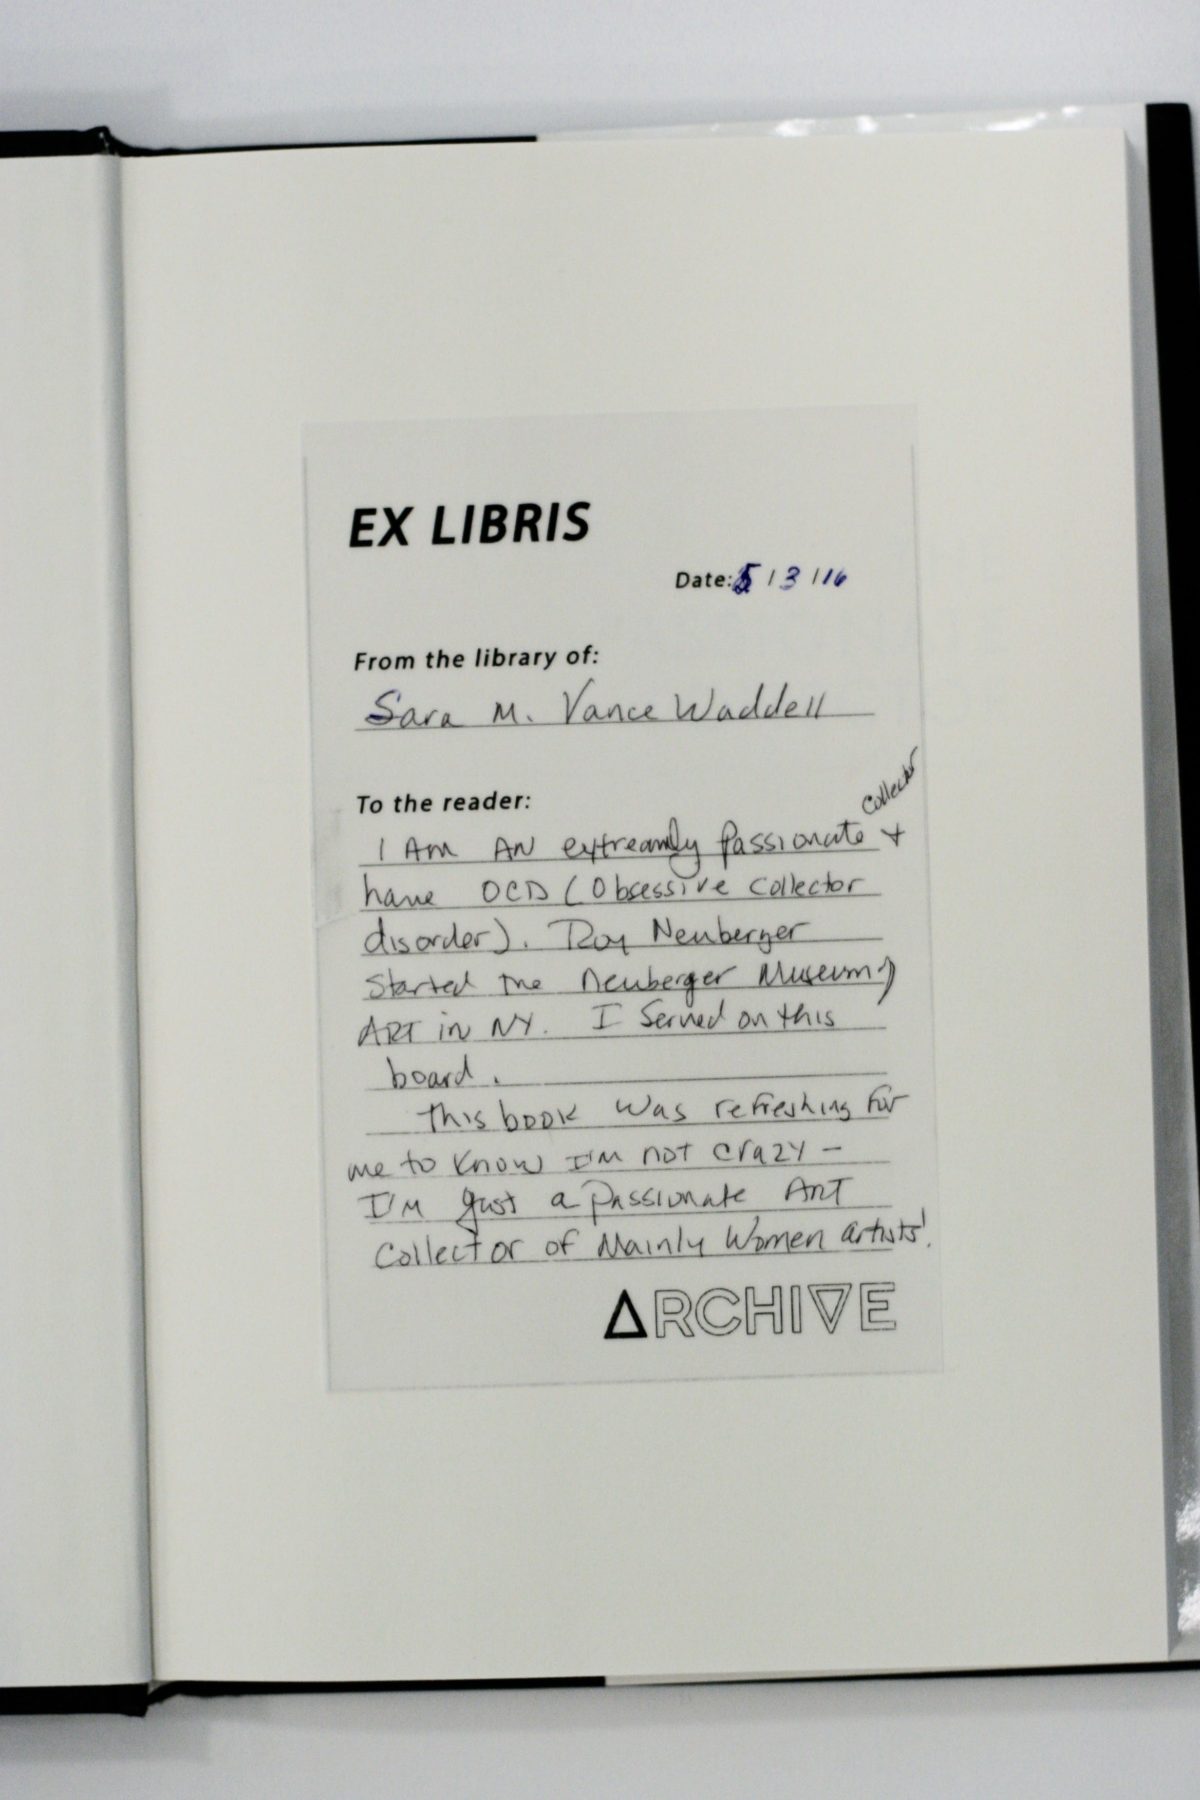 EX LIBRIS
Date: 5 / 3 / 16
From the library of:
Sara M. Vance Waddell
To the reader:
collector
I AM AN extreamly passionate +
have OCD (Obsessive collector
disorder). Roy Neuberger
Started the Neuberger Museum of
ART in NY. I served on this
board.
This book was refreshing for
me to know I'm not crazy –
I'm just a passionate ART
Collector of Mainly Women artists!
ARCHIVE